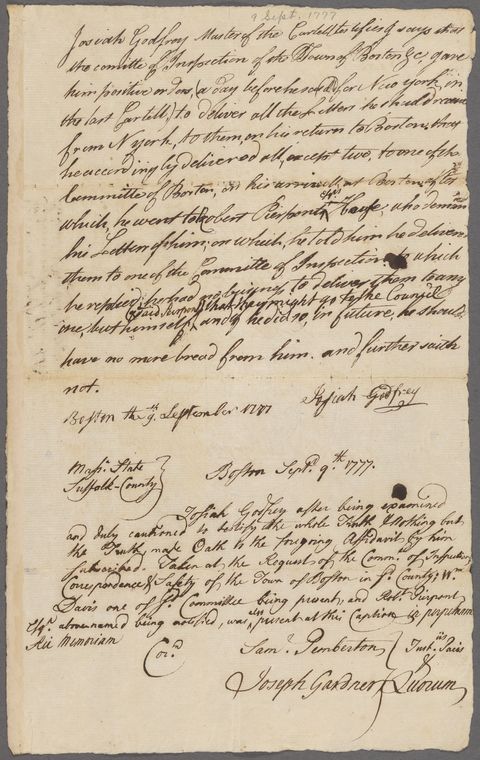 9 Sept. 1777
Josiah Godfrey Master of the Cartell testifies & says that
the comitte of Inspection of the Town of Boston &c gave
him positive orders, (a day before he said for New York, in
the last Cartell) to deliver all the Letters he should receive
from N york, to them, on his return to Boston, that
he accordingly delivered all, except two, to one of the
Committe of Boston, on his arrivall, at Boston, after
which, he went to Robert Pierpont Esqrs House, who deman
his Letters of him; on which, he told him he deliverd
them to one of the Committe of Inspection, to which
he replied, he had no bussiness to deliver them to any
(said Pierpont) that they might go to the Council
one, but himself, and if he did so, in future, he should
have no more bread from him. and further saith
not.
Boston the 9th September 1777 Josiah Godfrey
Massa State
Suffolk County } Boston Septr 9th 1777.
Josiah Godfrey after being examined
and duly cautioned to testify the whole Truth & Nothing but
the Truth, made Oath to the foregoing Affidavit by him
subscribed. Taken at the Request of the Comme of Inspection
Correspondence & Safety of the Town of Boston in sd County; Wm
Davis one of sd Committee being present, and Robt Pierpont
Esqr above named being notified, was also present at this Caption in perpetuam
Rei Memoriam
Cor. Saml Pemberton } Justus Pacis
&
Joseph Gardner } Quorum